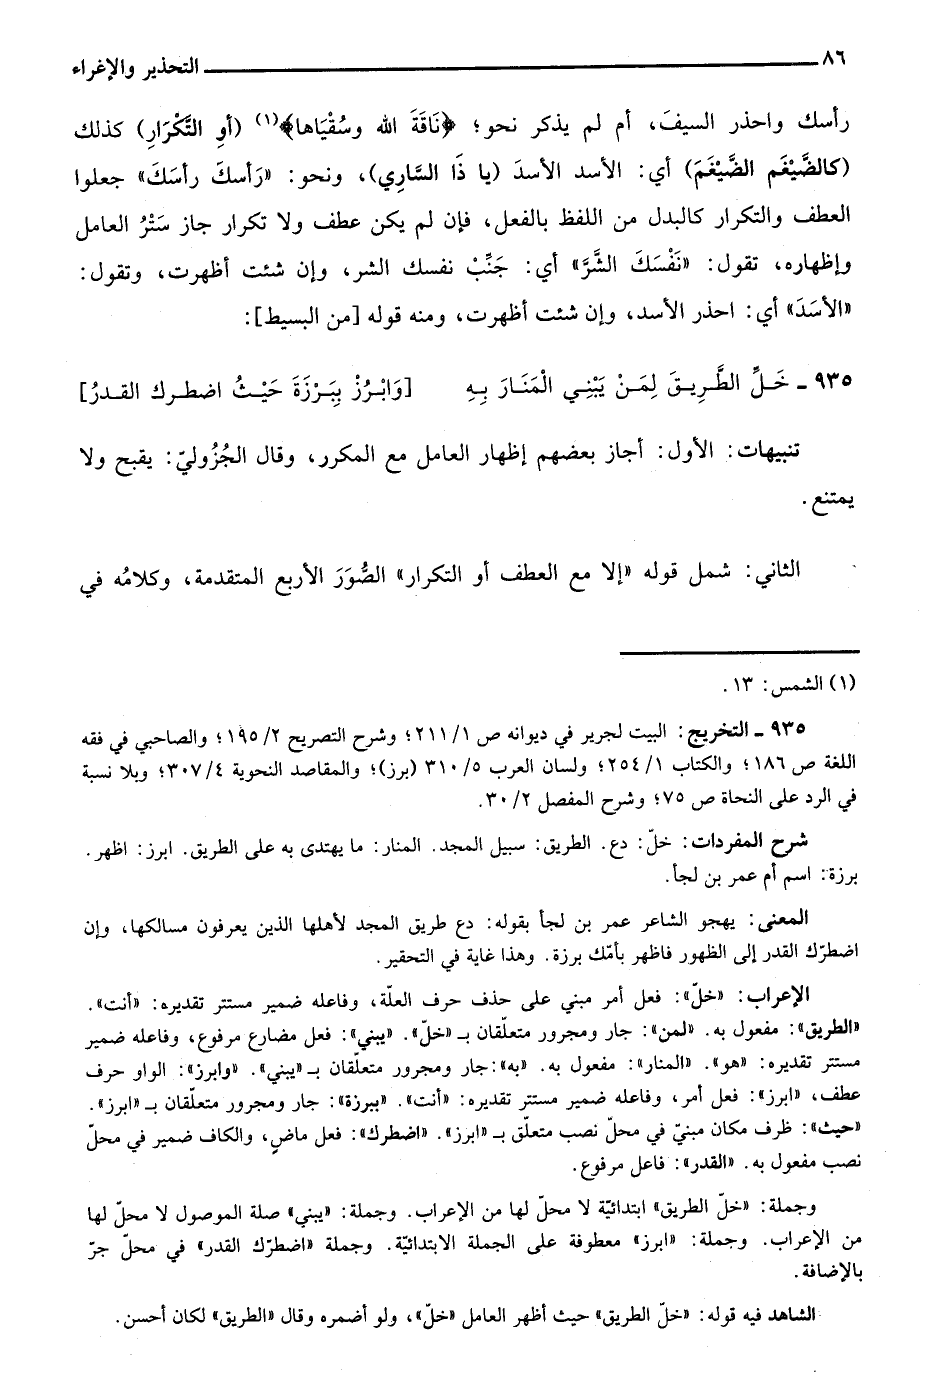 ٨٦ ــــ التحذير والإغراء
رأسك واحذر السيفَ، أم لم يذكر نحو؛ ﴿نَاقَةَ الله وسُقْيَاها﴾(١) (أوِ التَّكْرَارِ) كذلك
(كالضَّيْغَم الضَّيْغَمَ) أي: الأسد الأسدَ (يا ذَا السَّارِي)، ونحو: «رَأسكَ رأسَكَ» جعلوا
العطف والتكرار كالبدل من اللفظ بالفعل، فإن لم يكن عطف ولا تكرار جاز سَتْرُ العامل
وإظهاره، تقول: «نَفْسَكَ الشَّرَّ» أي: جَنِّبْ نفسك الشر، وإن شئت أظهرت، وتقول:
«الأسَدَ» أي: احذر الأسد، وإن شئت أظهرت، ومنه قوله [من البسيط]:
٩٣٥ ـ خَـلِّ الطَّـرِيـقَ لِمَـنْ يَبْنِي الْمَنَـارَ بِـهِ [وَابْـرُزْ بِبَـرْزَةَ حَيْـثُ اضطـرك القـدرُ]
تنبيهات: الأول: أجاز بعضهم إظهار العامل مع المكرر، وقال الجُزُوليّ: يقبح ولا
يمتنع.
الثاني: شمل قوله «إلا مع العطف أو التكرار» الصُّوَرَ الأربع المتقدمة، وكلامُه في
(١) الشمس: ١٣.
٩٣٥ ـ التخريج: البيت لجرير في ديوانه ص ٢١١/١؛ وشرح التصريح ١٩٥/٢؛ والصاحبي في فقه
اللغة ص ١٨٦؛ والكتاب ٢٥٤/١؛ ولسان العرب ٣١٠/٥ (برز)؛ والمقاصد النحوية ٣٠٧/٤؛ وبلا نسبة
في الرد على النحاة ص ٧٥؛ وشرح المفصل ٣٠/٢.
شرح المفردات: خلّ: دع. الطريق: سبيل المجد. المنار: ما يهتدى به على الطريق. ابرز: اظهر.
برزة: اسم أم عمر بن لجأ.
المعنى: يهجو الشاعر عمر بن لجأ بقوله: دع طريق المجد لأهلها الذين يعرفون مسالكها، وإن
اضطرّك القدر إلى الظهور فاظهر بأمّك برزة. وهذا غاية في التحقير.
الإعراب: «خلّ»: فعل أمر مبني على حذف حرف العلّة، وفاعله ضمير مستتر تقديره: «أنت».
«الطريق»: مفعول به. «لمن»: جار ومجرور متعلّقان بـ «خلّ». «يبني»: فعل مضارع مرفوع، وفاعله ضمير
مستتر تقديره: «هو». «المنار»: مفعول به. «به»:جار ومجرور متعلّقان بـ «يبني». «وابرز»: الواو حرف
عطف، «ابرز»: فعل أمر، وفاعله ضمير مستتر تقديره: «أنت». «ببرزة»: جار ومجرور متعلّقان بـ «ابرز».
«حيث»: ظرف مكان مبنيّ في محلّ نصب متعلّق بـ «ابرز». «اضطرك»: فعل ماضٍ، والكاف ضمير في محلّ
نصب مفعول به. «القدر»: فاعل مرفوع.
وجملة: «خلّ الطريق» ابتدائيّة لا محلّ لها من الإعراب. وجملة: «يبني» صلة الموصول لا محلّ لها
من الإعراب. وجملة: «ابرز» معطوفة على الجملة الابتدائيّة. وجملة «اضطرّك القدر» في محلّ جرّ
بالإضافة.
الشاهد فيه قوله: «خلّ الطريق» حيث أظهر العامل «خلّ»، ولو أضمره وقال «الطريق» لكان أحسن.